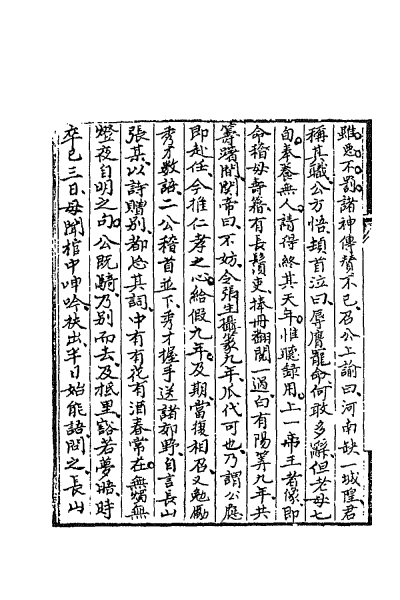 雖惡不罰諸神傳賛不已召公上諭曰河南缺一城隍君
稱其職公方悟頓首泣曰辱膺寵命何敢多辭但老母七
旬奉養無人請得終其天年惟聽錄用上一帝王者像即
命稽母壽籍有長鬚吏捧冊翻閱一過白有陽筭九年共
籌躇間關帝曰不妨令張生攝篆九年瓜代可也乃謂公應
即赴任今推仁孝之心給假九年及期當復相召又勉勵
秀才數語二公稽首並下秀才握手送諸郊野自言長山
張某以詩贈別都忘其詞中有有花有酒春常在無燭無
燈夜自明之句公既騎乃別而去及抵里豁若夢寤時
卒已三日母聞棺中呻吟扶出半日始能語問之長山